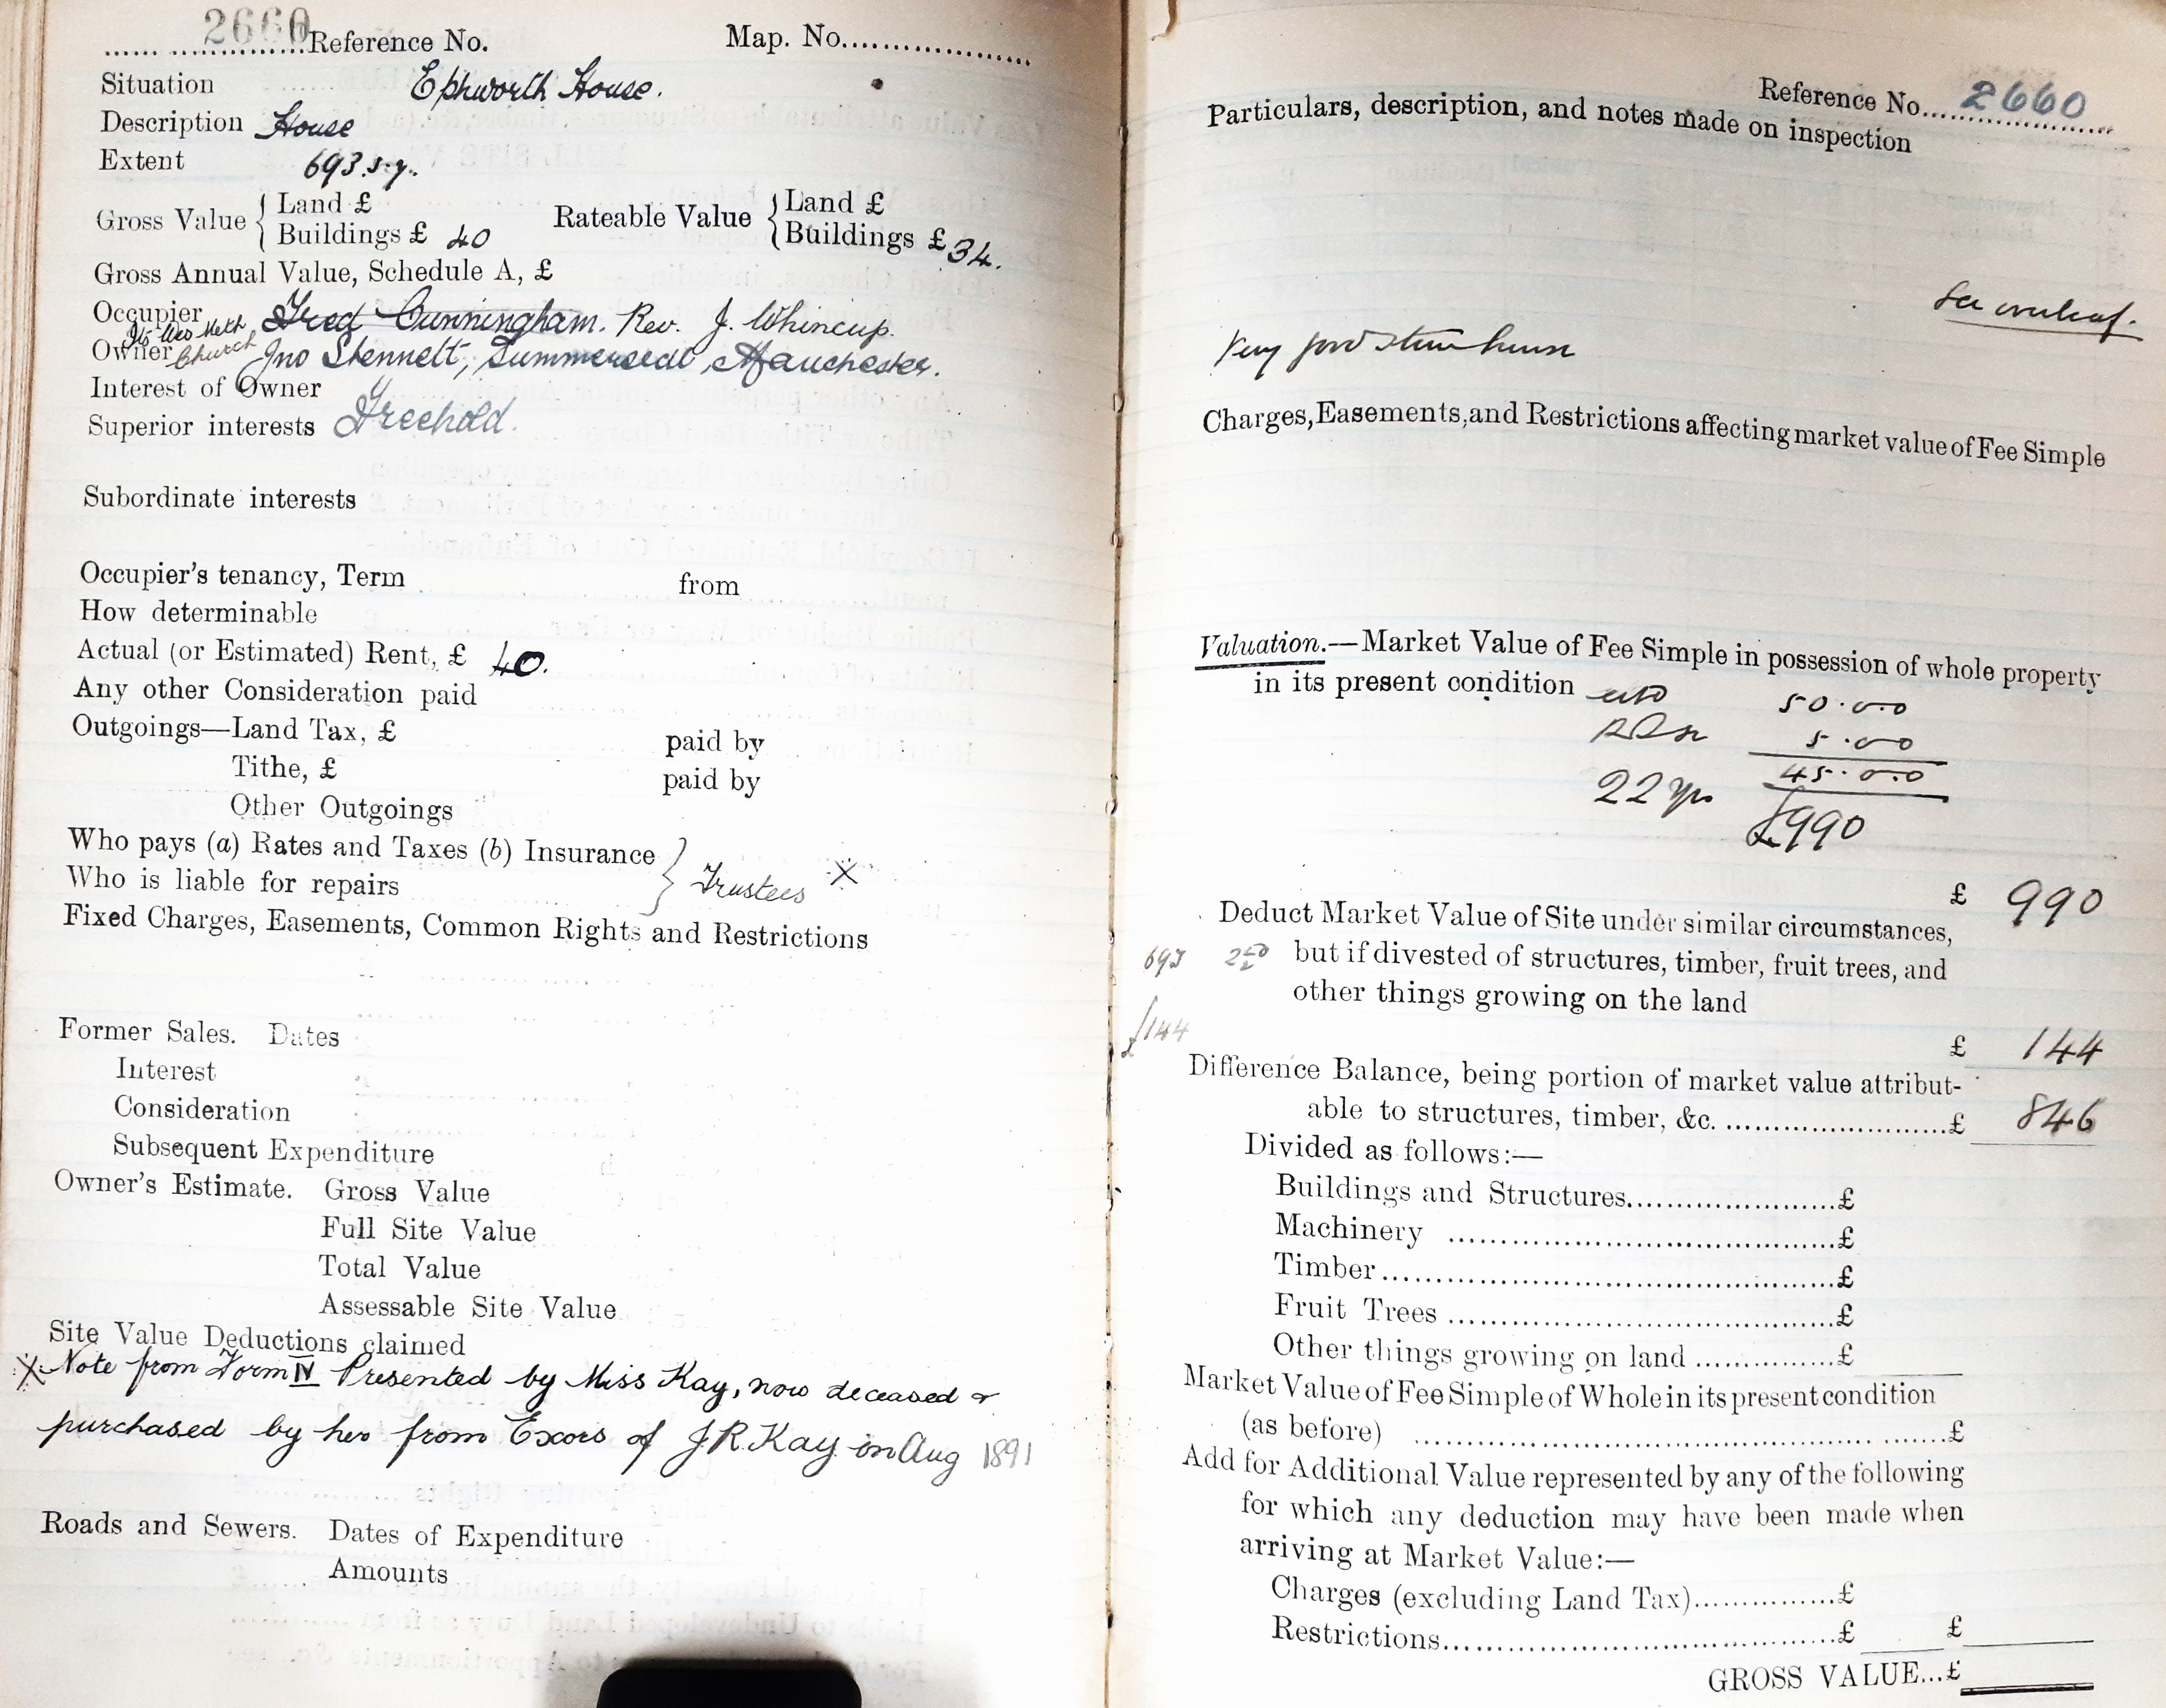 2660 Reference No. Map. No.
Situation Ephworth House.
Description House
Extent 693 s.y.
Gross Value { Land £ Rateable Value { Land £
Buildings £ 40 Buildings £ 34.
Gross Annual Value, Schedule A, £
Occupier Fred Cunningham. Rev. J. Whincup.
Wes Meth Church
Owner Jno Stennett, Summerseat, Manchester.
Interest of Owner
Superior interests Freehold.
Subordinate interests
Occupier's tenancy, Term from
How determinable
Actual (or Estimated) Rent, £ 40.
Any other Consideration paid
Outgoings—Land Tax, £ paid by
Tithe, £ paid by
Other Outgoings
Who pays (a) Rates and Taxes (b) Insurance } Trustees X
Who is liable for repairs
Fixed Charges, Easements, Common Rights and Restrictions
Former Sales. Dates
Interest
Consideration
Subsequent Expenditure
Owner's Estimate. Gross Value
Full Site Value
Total Value
Assessable Site Value
Site Value Deductions claimed
X Note from Form IV Presented by Miss Kay, now deceased &
purchased by her from Exors of J.R. Kay in Aug 1891
Roads and Sewers. Dates of Expenditure
Amounts
Reference No. 2660
Particulars, description, and notes made on inspection
See overleaf.
Very good stone house
Charges, Easements, and Restrictions affecting market value of Fee Simple
Valuation.—Market Value of Fee Simple in possession of whole property
in its present condition 50.0.0
5.0.0
45.0.0
22 yrs
£990
£ 990
Deduct Market Value of Site under similar circumstances,
693 but if divested of structures, timber, fruit trees, and
other things growing on the land
£144
£ 144
Difference Balance, being portion of market value attribut-
able to structures, timber, &c. £ 846
Divided as follows:—
Buildings and Structures £
Machinery £
Timber £
Fruit Trees £
Other things growing on land £
Market Value of Fee Simple of Whole in its present condition
(as before) £
Add for Additional Value represented by any of the following
for which any deduction may have been made when
arriving at Market Value:—
Charges (excluding Land Tax) £
Restrictions £ £
GROSS VALUE...£